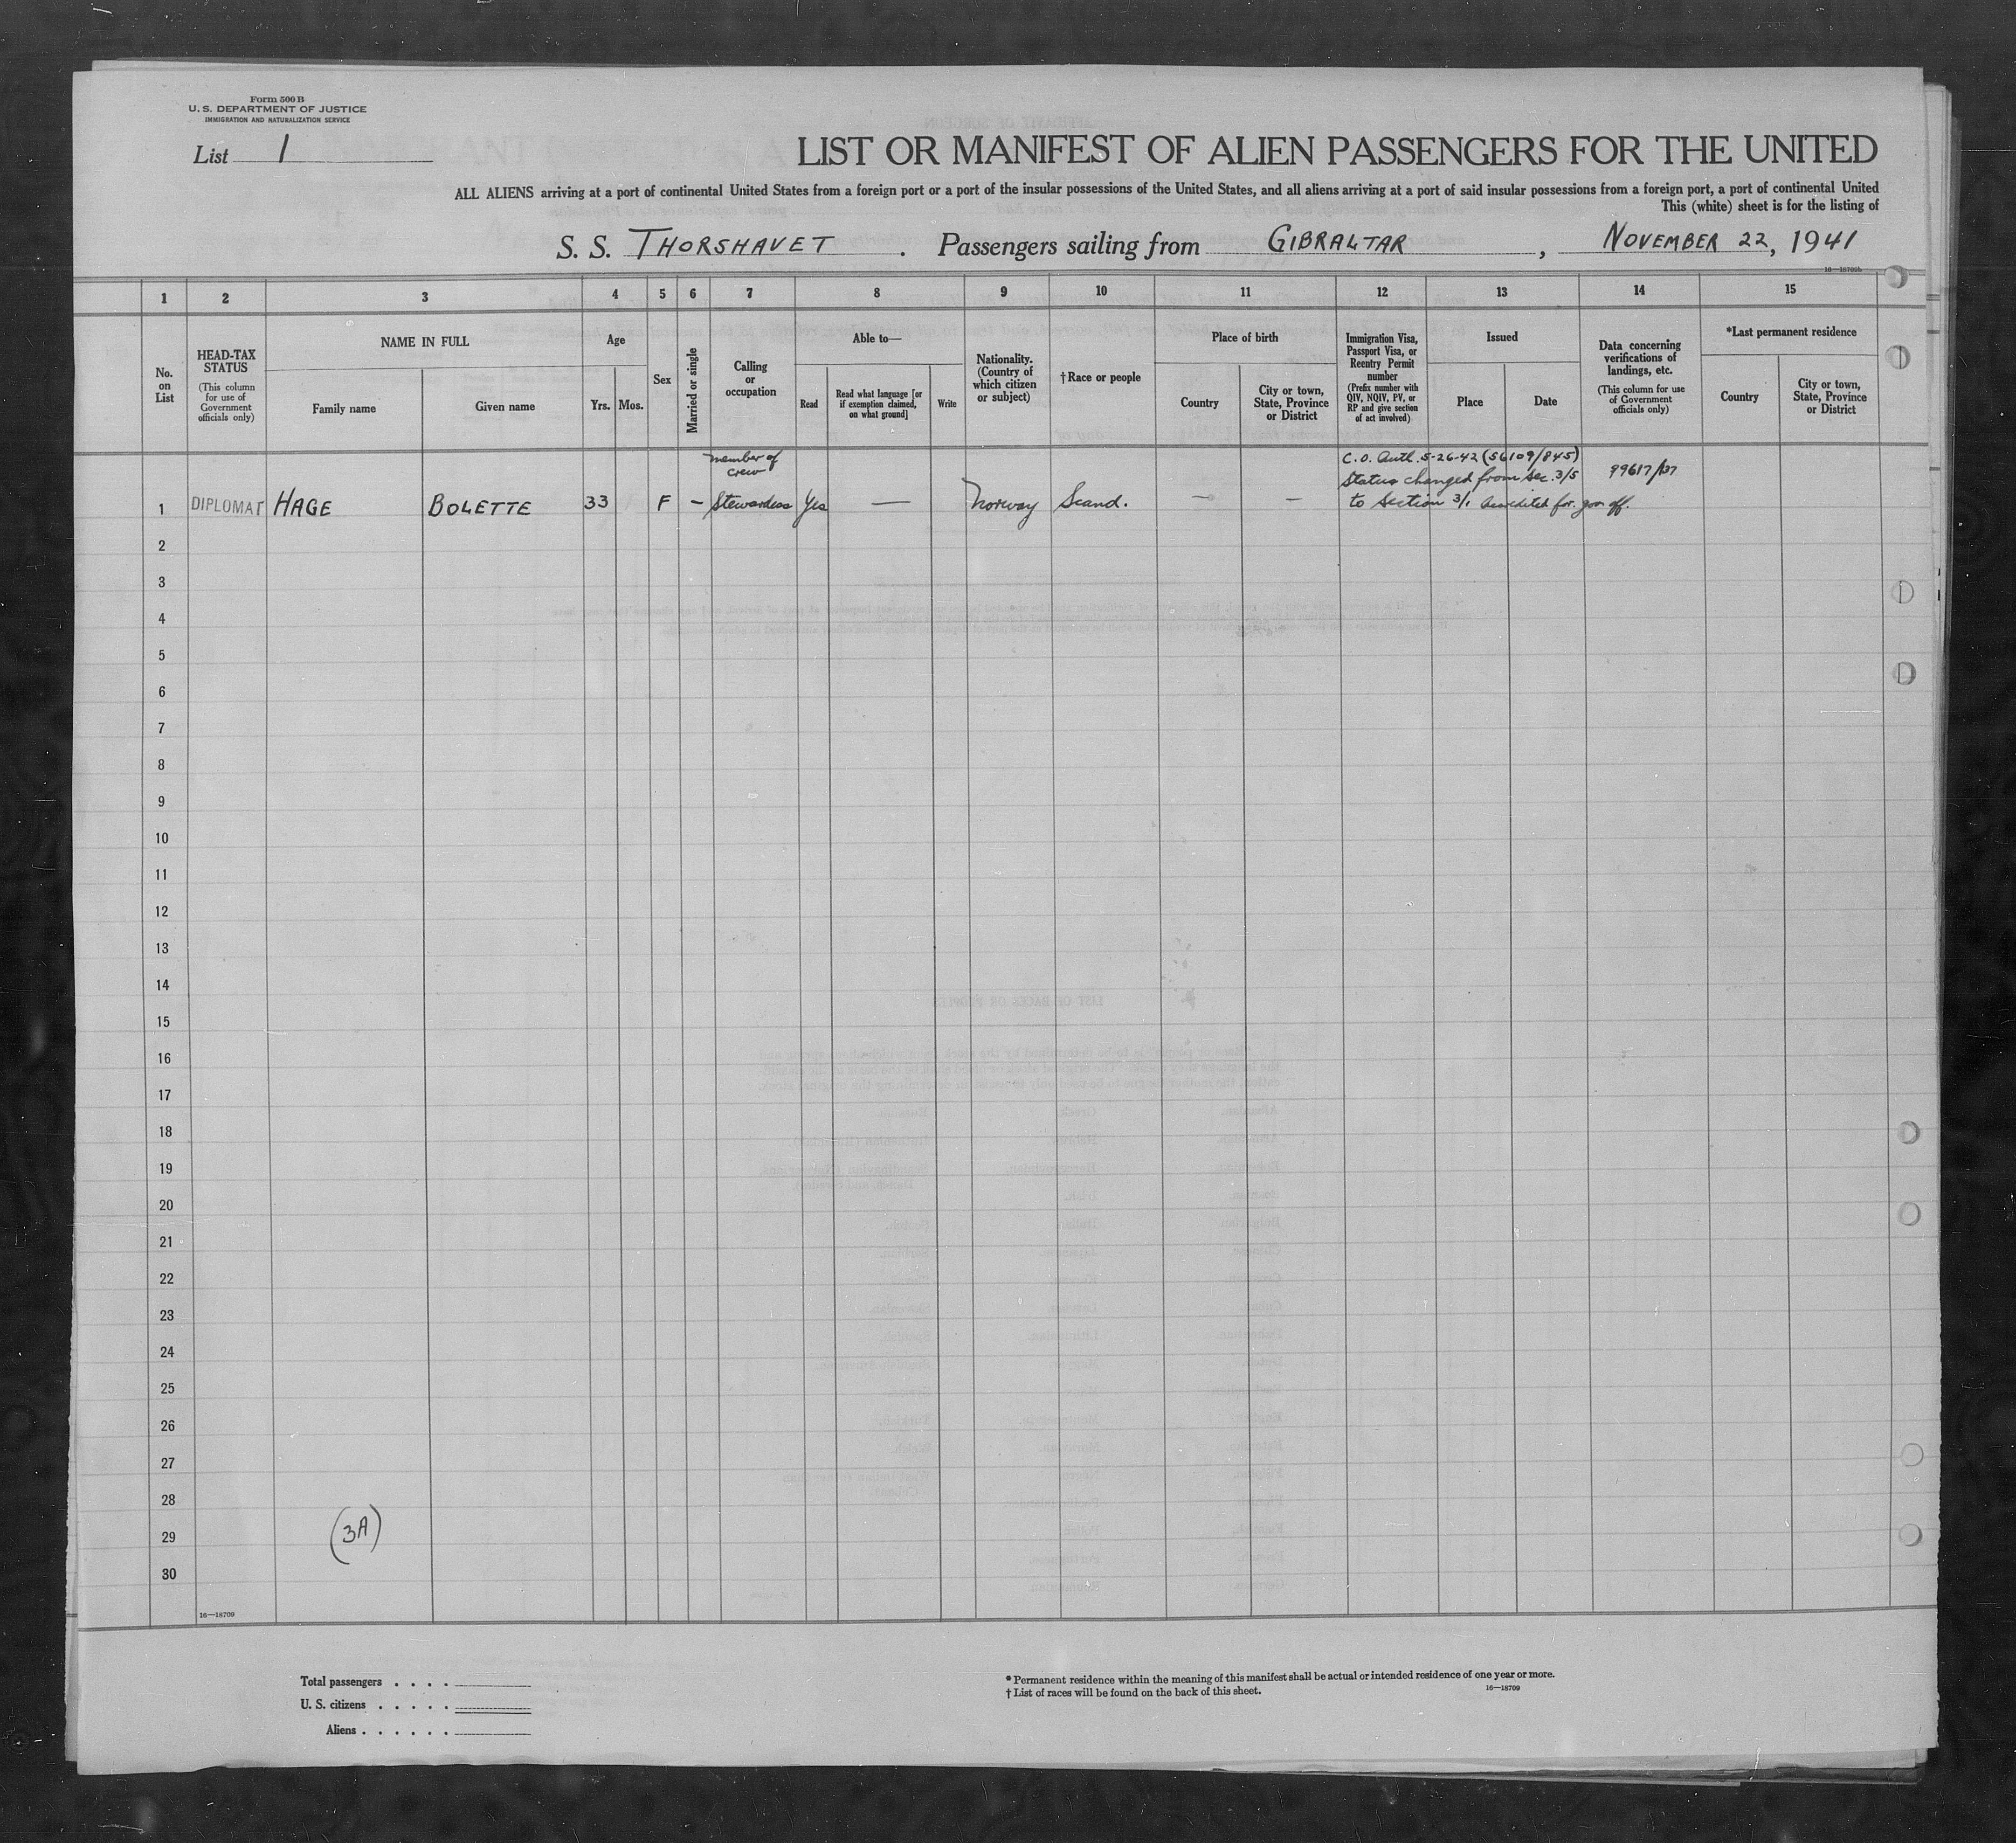 Form 500 B
U. S. DEPARTMENT OF JUSTICE
IMMIGRATION AND NATURALIZATION SERVICE
List 1
LIST OR MANIFEST OF ALIEN PASSENGERS FOR THE UNITED
ALL ALIENS arriving at a port of continental United States from a foreign port or a port of the insular possessions of the United States, and all aliens arriving at a port of said insular possessions from a foreign port, a port of continental United
This (white) sheet is for the listing of
S. S. THORSHAVET . Passengers sailing from GIBRALTAR , NOVEMBER 22, 1941
16—18709b
1 2 3 4 5 6 7 8 9 10 11 12 13 14 15
No. on List
HEAD-TAX STATUS
(This column for use of Government officials only)
NAME IN FULL
Family name
Given name
Age
Yrs. Mos.
Sex
Married or single
Calling or occupation
Able to—
Read
Read what language [or if exemption claimed, on what ground]
Write
Nationality. (Country of which citizen or subject)
†Race or people
Place of birth
Country
City or town, State, Province or District
Immigration Visa, Passport Visa, or Reentry Permit number
(Prefix number with QIV, NQIV, PV, or RP and give section of act involved)
Issued
Place
Date
Data concerning verifications of landings, etc.
(This column for use of Government officials only)
*Last permanent residence
Country
City or town, State, Province or District
member of
crew
C.O. Auth. 5-26-42 (56109/845)
Status changed from Sec. 3/5
99617/137
1 DIPLOMAT HAGE BOLETTE 33 F – Stewardess Yes — Norway Scand. — – to Section 3/1 Accredited for. gov. off.
2
3
4
5
6
7
8
9
10
11
12
13
14
15
16
17
18
19
20
21
22
23
24
25
26
27
28
29
30
(3A)
16—18709
Total passengers . . . .
U. S. citizens . . . . .
Aliens . . . . . .
* Permanent residence within the meaning of this manifest shall be actual or intended residence of one year or more.
† List of races will be found on the back of this sheet.
16—18709